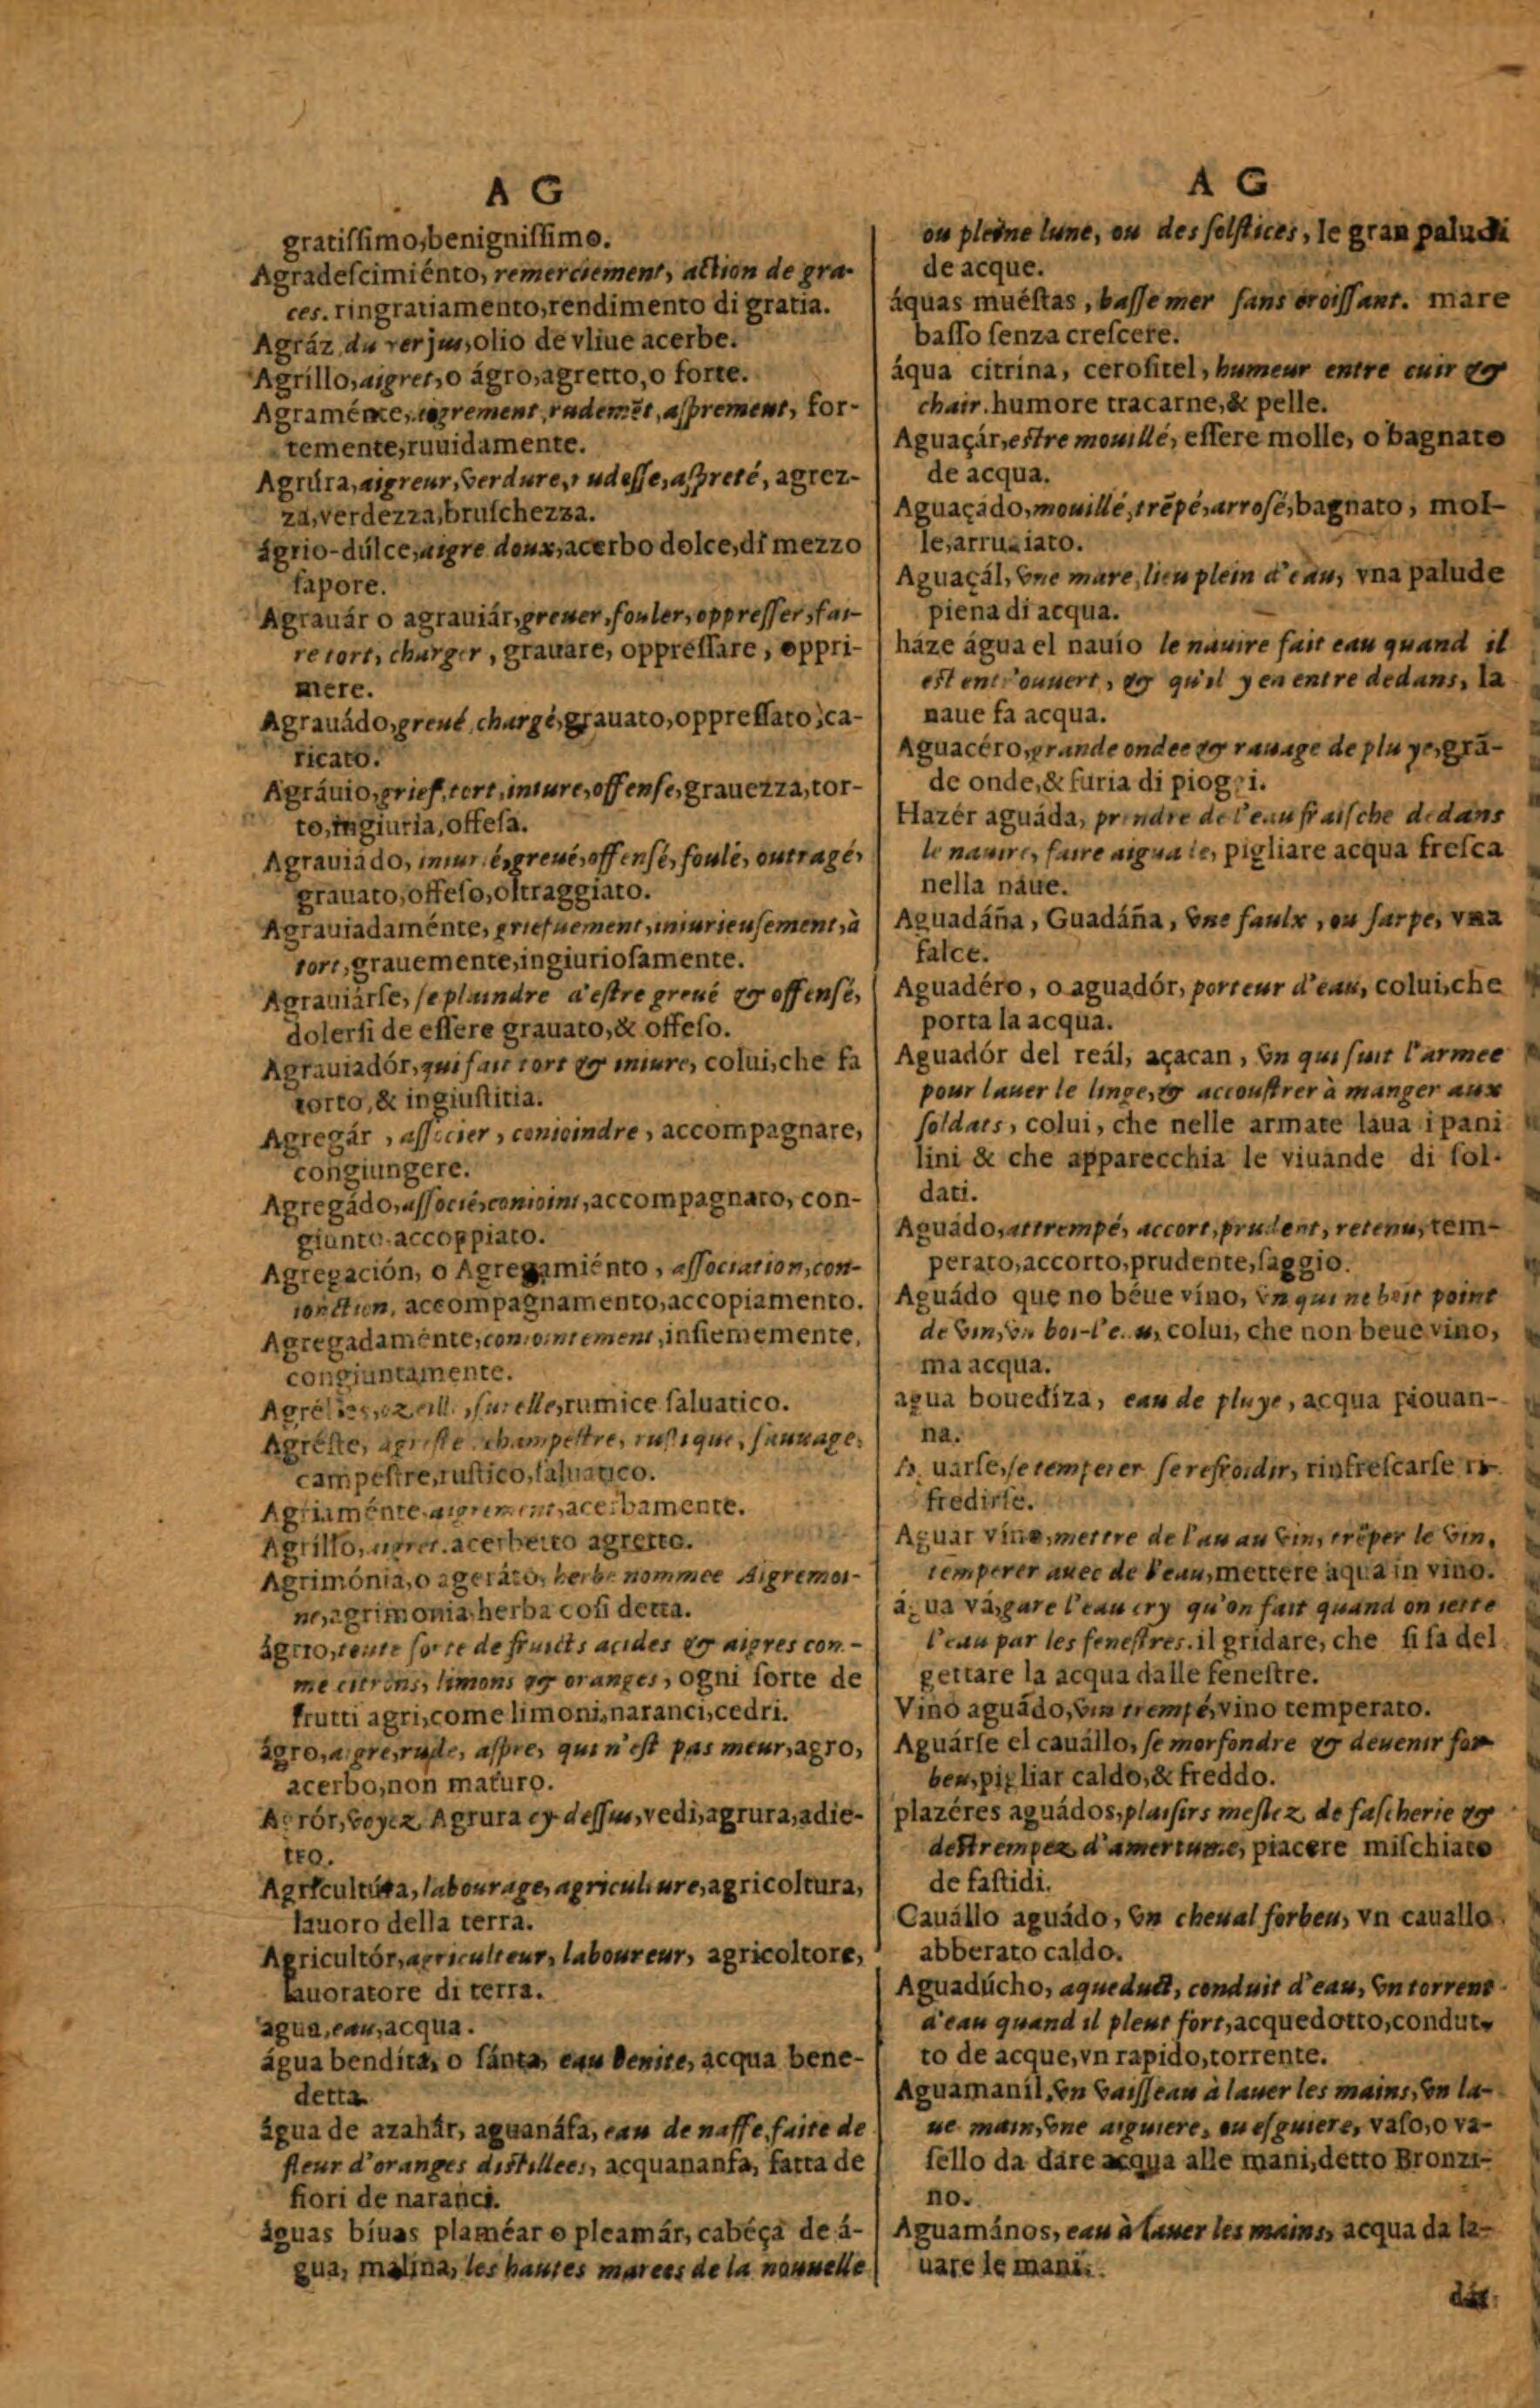 A G
gratiſſimo,benigniſſimo.
Agradeſcimiénto, remerciement, action de gra-
ces. ringratiamento,rendimento di gratia.
Agráz, du verjus,olio de vliue acerbe.
Agrillo,aigret,o ágro,agretto,o forte.
Agraménte, rudemẽt, aſprement, for-
temente,ruuidamente.
Agrúra,aigreur,verdure, rudeſſe,aſpreté, agrez-
za,verdezza,bruſchezza.
ágrio-dúlce,aigre doux,acerbo dolce,di mezzo
ſapore.
Agrauár o agrauiár,greuer,fouler,oppreſſer,fai-
re tort, charger, grauare, oppreſſare, oppri-
mere.
Agrauádo,greué,chargé,grauato,oppreſſato,ca-
ricato.
Agráuio,grief,tort,iniure,offenſe,grauezza,tor-
to,ingiuria,offeſa.
Agrauiádo, iniurié,greué,offenſé,foulé, outragé,
grauato,offeſo,oltraggiato.
Agrauiadaménte, griefuement,iniurieuſement,à
tort,grauemente,ingiurioſamente.
Agrauiárſe, ſe plaindre d'eſtre greué & offenſé,
dolerſi de eſſere grauato,& offeſo.
Agrauiadór,qui fait tort & iniure, colui,che fa
torto,& ingiuſtitia.
Agregár, aſſocier, conioindre, accompagnare,
congiungere.
Agregádo,aſſocié,conioint,accompagnato, con-
giunto.accoppiato.
Agregación, o Agregamiénto, aſſociation,con-
ionction, accompagnamento,accopiamento.
Agregadaménte,conioíntement,inſiememente,
congiuntamente.
ſurelle,rumice ſaluatico.
Agréſte, agreſte champeſtre, ruſtique, ſauuage,
campeſtre,ruſtico,ſaluatico.
Agriaménte.aigrement,acerbamente.
Agrillo, aigret.acerbetto agretto.
Agrimónia,o ageráto, herbe nommee Aigremoi-
ne,agrimonia herba coſi detta.
ágrio,toute ſorte de fruicts acides & aigres com-
me citrons, limons & oranges, ogni ſorte de
frutti agri,come limoni,naranci,cedri.
ágro,aigre,rude, aſpre, qui n'eſt pas meur,agro,
acerbo,non maturo.
Agrór,voyez Agrura cy-deſſus,vedi,agrura,adie-
tro.
Agricultúra,labourage,agriculture,agricoltura,
lauoro della terra.
Agricultór,agriculteur, laboureur, agricoltore,
lauoratore di terra.
agua,eau,acqua.
água bendita, o ſánta, eau benite, acqua bene-
detta.
água de azahár, aguanáfa, eau de naffe,faite de
fleur d'oranges diſtillees, acquananfa, fatta de
fiori de naranci.
águas bíuas plaméar o pleamár, cabéça de á-
gua, malina, les hautes marees de la nouuelle
A G
ou pleine lune, ou des ſolſtices, le gran paludi
de acque.
áquas muéſtas, baſſe mer ſans croiſſant. mare
baſſo ſenza creſcere.
áqua citrina, cerofitel, humeur entre cuir &
chair.humore tracarne,& pelle.
Aguaçár,eſtre mouillé, eſſere molle, o bagnato
de acqua.
Aguaçádo,mouillé,trẽpé,arroſé,bagnato, mol-
le,arrugiato.
Aguaçál, vne mare,lieu plein d'eau, vna palude
piena di acqua.
háze água el nauío le nauire fait eau quand il
eſt entr'ouuert, & qu'il y en entre dedans, la
naue fa acqua.
Aguacéro,grande ondee & rauage de pluye,grã-
de onde,& furia di pioggi.
Hazér aguáda, prendre de l'eau fraiſche dedans
le nauire, faire aiguade, pigliare acqua freſca
nella naue.
Aguadáña, Guadáña, vne faulx, ou ſarpe, vna
falce.
Aguadéro, o aguadór, porteur d'eau, colui,che
porta la acqua.
Aguadór del reál, açacan, vn qui ſuit l'armee
pour lauer le linge,& accouſtrer à manger aux
ſoldats, colui, che nelle armate laua i pani
lini & che apparecchia le viuande di ſol-
dati.
Aguádo,attrempé, accort,prudent, retenu, tem-
perato,accorto,prudente,ſaggio.
Aguádo que no béue víno, vn qui ne boit point
de vin,vn boi-l'eau, colui, che non beue vino,
ma acqua.
agua bouedíza, eau de pluye, acqua piouan-
na.
uarſe,ſe temperer ſe refroidir, rinfreſcarſe ri-
fredirſe.
Aguar víno,mettre de l'au au vin, trẽper le vin,
temperer auec de l'eau,mettere aqua in vino.
água vá,gare l'eau cry qu'on fait quand on iette
l'eau par les feneſtres.il gridare, che ſi fa del
gettare la acqua dalle feneſtre.
Vino aguádo,vin trempé,vino temperato.
Aguárſe el cauállo, ſe morfondre & deuenir for-
beu,pigliar caldo,& freddo.
plazéres aguádos,plaiſirs meſlez de faſcherie &
deſtrempez d'amertume, piacere miſchiato
de faſtidi.
Cauállo aguádo, vn cheual forbeu, vn cauallo
abberato caldo.
Aguadúcho, aqueduct, conduit d'eau, vn torrent
d'eau quand il pleut fort,acquedotto,condut-
to de acque,vn rapido,torrente.
Aguamaníl,vn vaiſſeau à lauer les mains,vn la-
ue main,vne aiguiere, ou eſguiere, vaſo,o va-
ſello da dare acqua alle mani,detto Bronzi-
no.
Aguamános, eau à lauer les mains, acqua da la-
uare le mani.